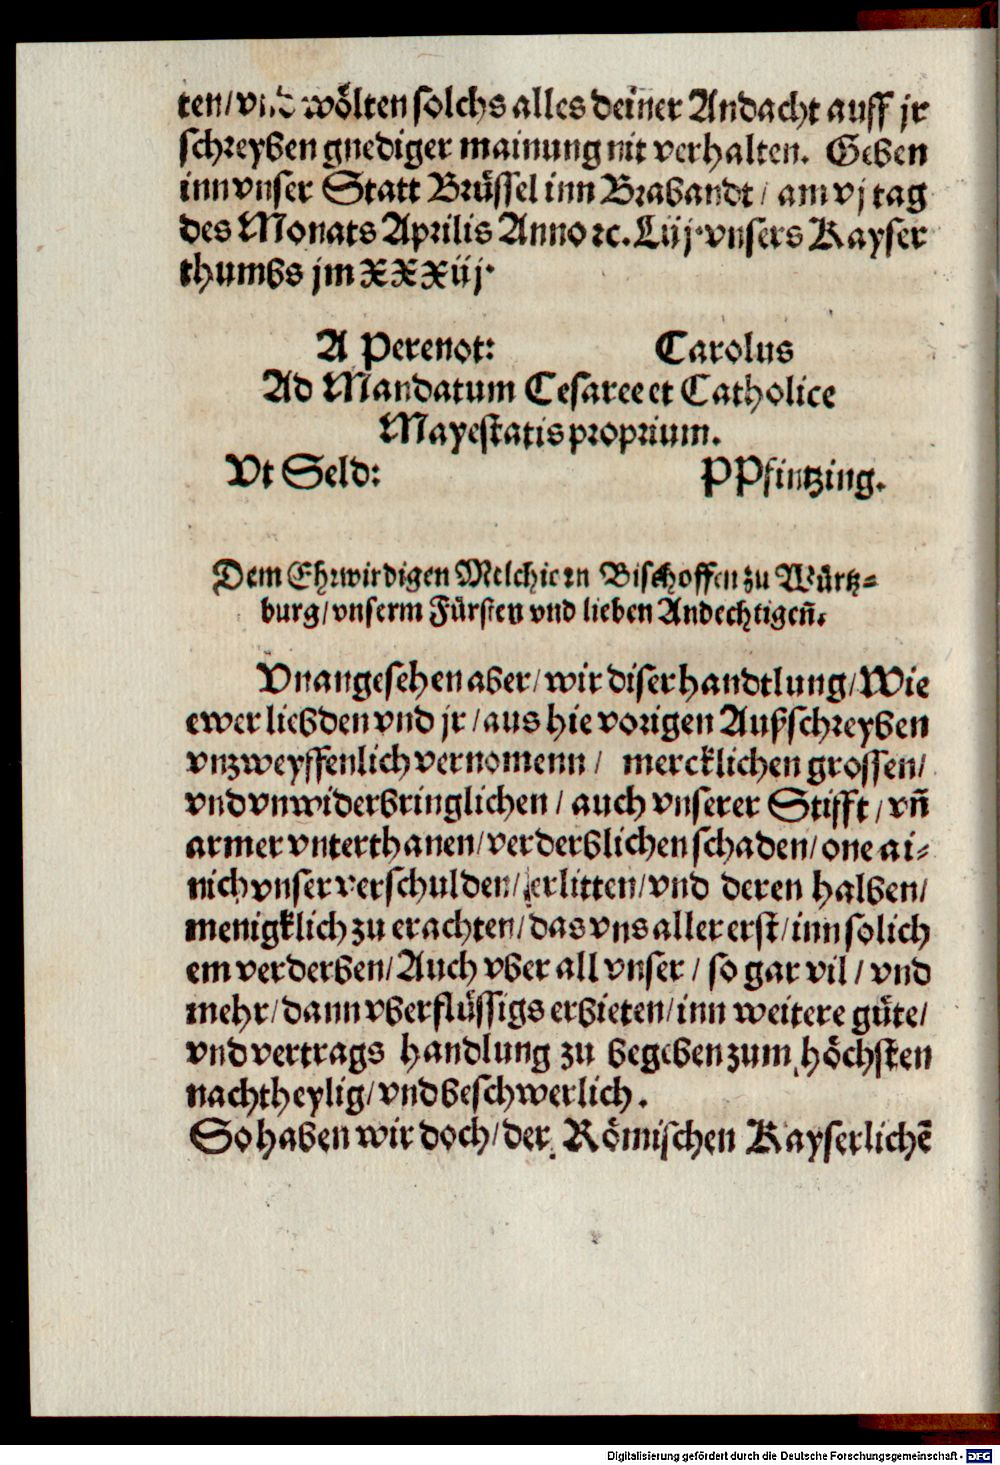 ten/ vnd wölten solchs alles deiner Andacht auff jr
schreyben gnediger mainung nit verhalten. Geben
inn vnser Statt Brüssel inn Brabandt / am vj tag
des Monats Aprilis Anno ꝛc. Liij. vnsers Kayser
thumbs jm XXXiij.
A Perenot: Carolus
Ad Mandatum Cesaree et Catholice
Mayestatis proprium.
Vt Seld: PPfintzing.
Dem Ehrwirdigen Melchiorn Bischoffen zu Würtz-
burg/ vnserm Fürsten vnd lieben Andechtigen̄.
Vnangesehen aber/ wir diser handtlung/ Wie
ewer liebden vnd jr / aus hie vorigen Außschreyben
vnzweyffenlich vernomenn / mercklichen grossen/
vnd vnwiderbringlichen / auch vnserer Stifft / vn̄
armer vnterthanen/ verderblichen schaden/ one ai-
nich vnser verschulden/ erlitten/ vnd deren halben/
menigklich zu erachten/ das vns aller erst/ inn solich
em verderben/ Auch vber all vnser / so gar vil / vnd
mehr/ dann vberflüssigs erbieten/ inn weitere güte/
vnd vertrags handlung zu begeben zum höchsten
nachtheylig/ vnd beschwerlich.
So haben wir doch/ der Römischen Kayserlichē
Digitalisierung gefördert durch die Deutsche Forschungsgemeinschaft - DFG